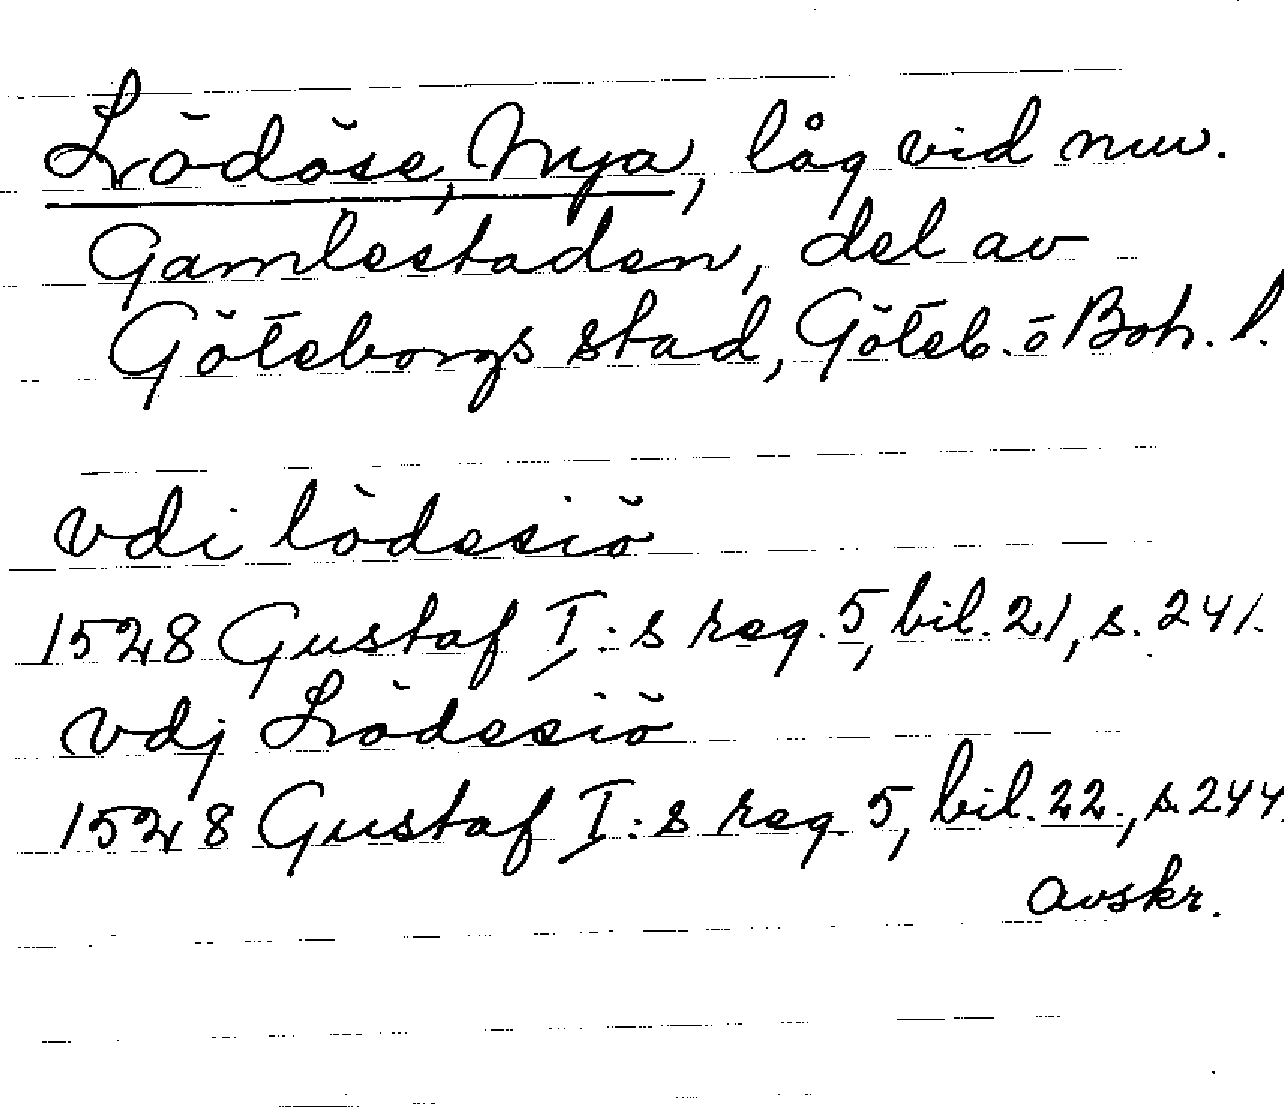 Lödöse, Nya, låg vid nuv.
Gamlestaden, del av
Göteborgs stad, Göteb. o Boh. l.
vdi lödesiö
1528 Gustaf I:s reg. 5, bil. 21, s. 241.
vdj Lödesiö
1528 Gustaf I:s reg 5, bil. 22, s. 244.
avskr.